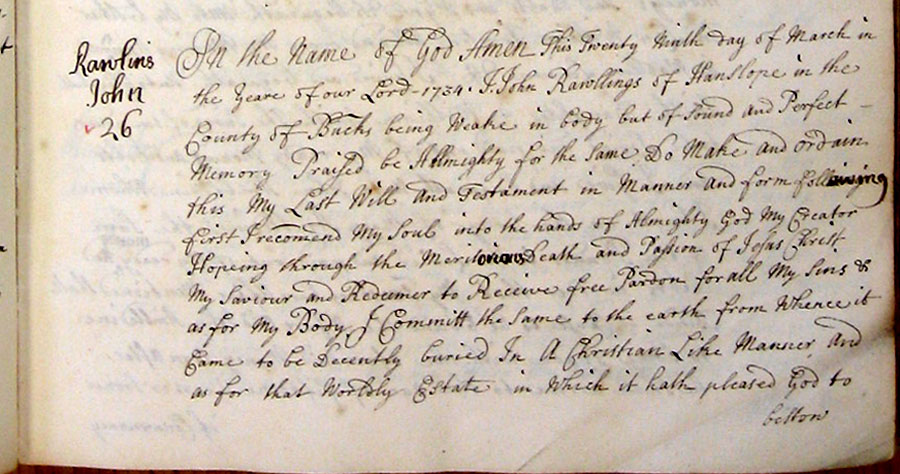 Rawlins
John
26
In the Name of God Amen This Twenty Ninth day of March in
the Yeare of our Lord 1734. I John Rawllings of Hanslope in the
County of Bucks being Weake in body but of Sound and Perfect
Memory Praised be Allmighty for the Same Do Make and ordain
this My Last Will and Testament in Manner and form following
first I recomend My Soul into the hands of Almighty God My Creator
Hopeing through the Meritorious Death and Passion of Jesus Christ
My Saviour and Redeemer to Receive free Pardon for all My Sins &
as for My Body I Committ the Same to the earth from Whence it
Came to be Decently buried In A Christian Like Manner And
as for that Worldly Estate in Which it hath pleased God to
bestow